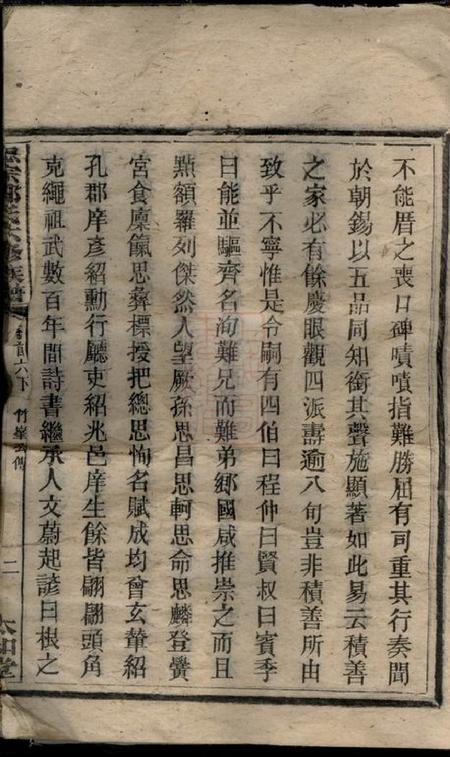 不能厝之喪口碑嘖嘖指難勝屈有司重其行奏聞
於朝錫以五品同知銜其聲施顯著如此易云積善
之家必有餘慶眼觀四派壽逾八旬豈非積善所由
致乎不寧惟是令嗣有四伯曰程仲曰賢叔曰賓季
曰能並驅齊名洵難兄而難弟鄉國咸推崇之而且
點額羅列傑然人望厥孫思昌思軻思命思麟登黌
宮食廩餼思彝標授把總思恂名賦成均曾玄輩紹
孔郡庠彥紹勳行廳吏紹兆邑庠生餘皆翩翩頭角
克繩祖武數百年間詩書繼承人文蔚起諺曰根之
族譜 首六下 竹峯公傳 二 太和堂